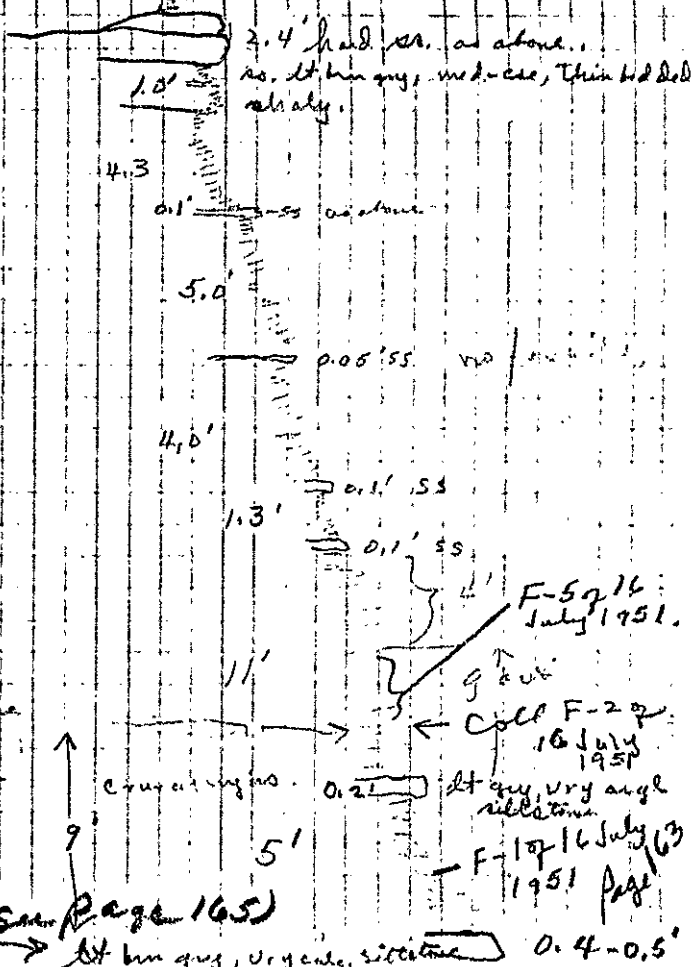 2.4' hard ss. as above..
ss. lt brn gry, med-cse, thin bedded
shaly.
1.0'
4.3
0.1' ss as above
5.0'
0.05' SS no
4.0'
0.1' SS
1.3'
0.1' SS
4'
F-5 of 16
July 1951.
11'
Coll F-2 of
16 July
1951
0.2' lt gry, vry
siltstone
9'
5'
F-1 of 16 July
1951 Page 163
Page 165)
lt brn gry, vry calc, siltstone 0.4-0.5'